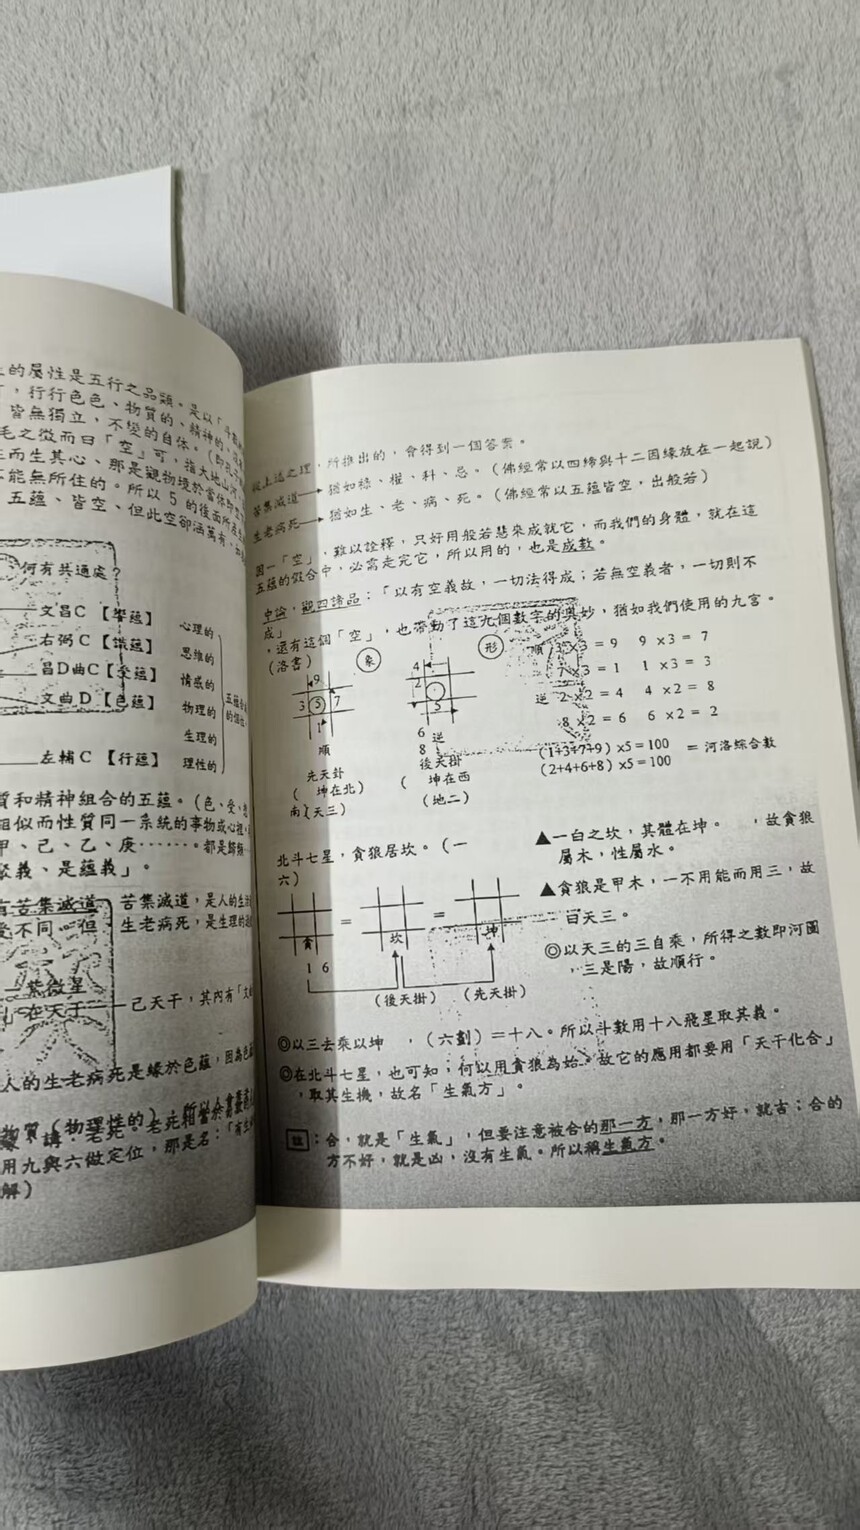 的屬性是五行之品類。是以「斗
，行行色色、物質的、精神的，
皆無獨立，不變的自体。（即
毛之微而曰「空」可，指大地山河
而生其心、那是觀物境於當体即
能無所住的。所以 5 的後面所
五蘊、皆空、但此空卻涵萬有，
何有共通處？
文昌C 【
右弼C 【識蘊】
昌D曲C【受蘊】
文曲D 【色蘊】
左輔C 【行蘊】
心理的
思維的
情感的
物理的
生理的
理性的
質和精神組合的五蘊。（色、受、想
相似而性質同一系統的事物或心裡
甲、己、乙、庚……。都是歸類
聚義、是蘊義」。
有苦集滅道，苦集滅道，是人的生
受不同。但，生老病死，是生理的
紫微星
在天干
己天干，其內有「文
人的生老病死是緣於色蘊，因為色
物質（物理性的）
用九與六做定位，那是名：「有
解）
從上述之理，所推出的，會得到一個答案。
苦集滅道→猶如祿、權、科、忌。（佛經常以四締與十二因緣放在一起說）
生老病死→猶如生、老、病、死。（佛經常以五蘊皆空，出般若）
因一「空」，難以詮釋，只好用般若慧來成就它，而我們的身體，就在這
五蘊的假合中，必需走完它，所以用的，也是成數。
中論，觀四諦品：「以有空義故，一切法得成；若無空義者，一切則不
成」
，還有這個「空」，也帶動了這九個數字的奧妙，猶如我們使用的九宮。
（洛書）
象
9
3 5 7
1
順
先天卦
（ 坤在北）
南）（天三）
形
4
2
5
6 逆
8
後天掛
（ 坤在西
（地二）
順 3×3 = 9 9 ×3 = 7
7×3 = 1 1 ×3 = 3
逆 2×2 = 4 4 ×2 = 8
8 ×2 = 6 6 ×2 = 2
(1+3+7+9) ×5 = 100 = 河洛綜合數
(2+4+6+8) ×5 = 100
北斗七星，貪狼居坎。（一
六）
貪 = 坎 = 坤
1 6
（後天掛） （先天掛）
▲一白之坎，其體在坤。 ，故貪狼
屬木，性屬水。
▲貪狼是甲木，一不用能而用三，故
曰天三。
◎以天三的三自乘，所得之數即河圖
，三是陽，故順行。
◎以三去乘以坤 ，（六劃）＝十八。所以斗數用十八飛星取其義。
◎在北斗七星，也可知；何以用貪狼為始，故它的應用都要用「天干化合」
，取其生機，故名「生氣方」。
註：合，就是「生氣」，但要注意被合的那一方，那一方好，就吉；合的
方不好，就是凶，沒有生氣。所以稱生氣方。